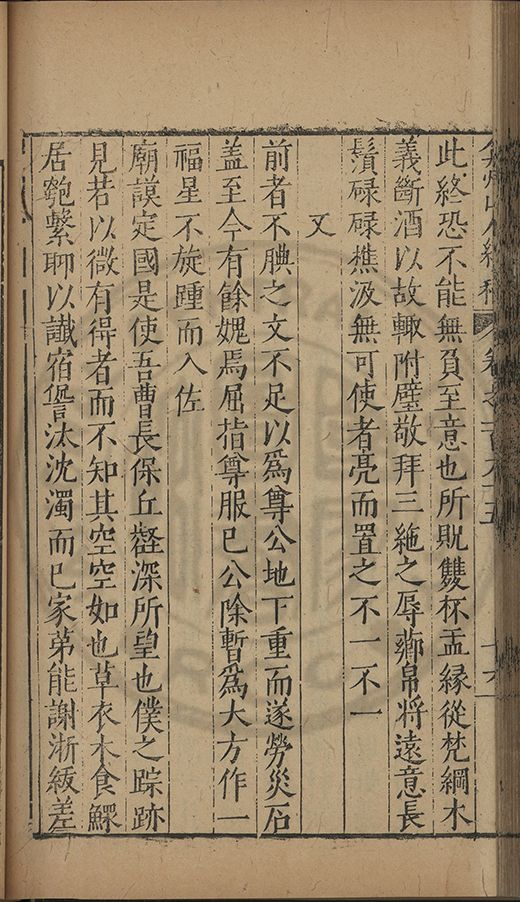 弇州山人續稿 卷之一百九十五 十六
此終恐不能無負至意也所貺雙杯盂縁從梵綱木
義斷酒以故輙附璧敬拜三絁之辱薌帛將遠意長
鬚碌碌樵汲無可使者亮而置之不一不一
又
前者不腆之文不足以爲尊公地下重而遂勞災石
盖至今有餘媿焉屈指尊服已公除暫爲大方作一
福星不旋踵而入佐
廟謨定國是使吾曹長保丘壑深所望也僕之踪跡
見若以微有得者而不知其空空如也草衣木食鰥
居匏繫聊以讖宿諐汰沈濁而已家第能謝淅綬差